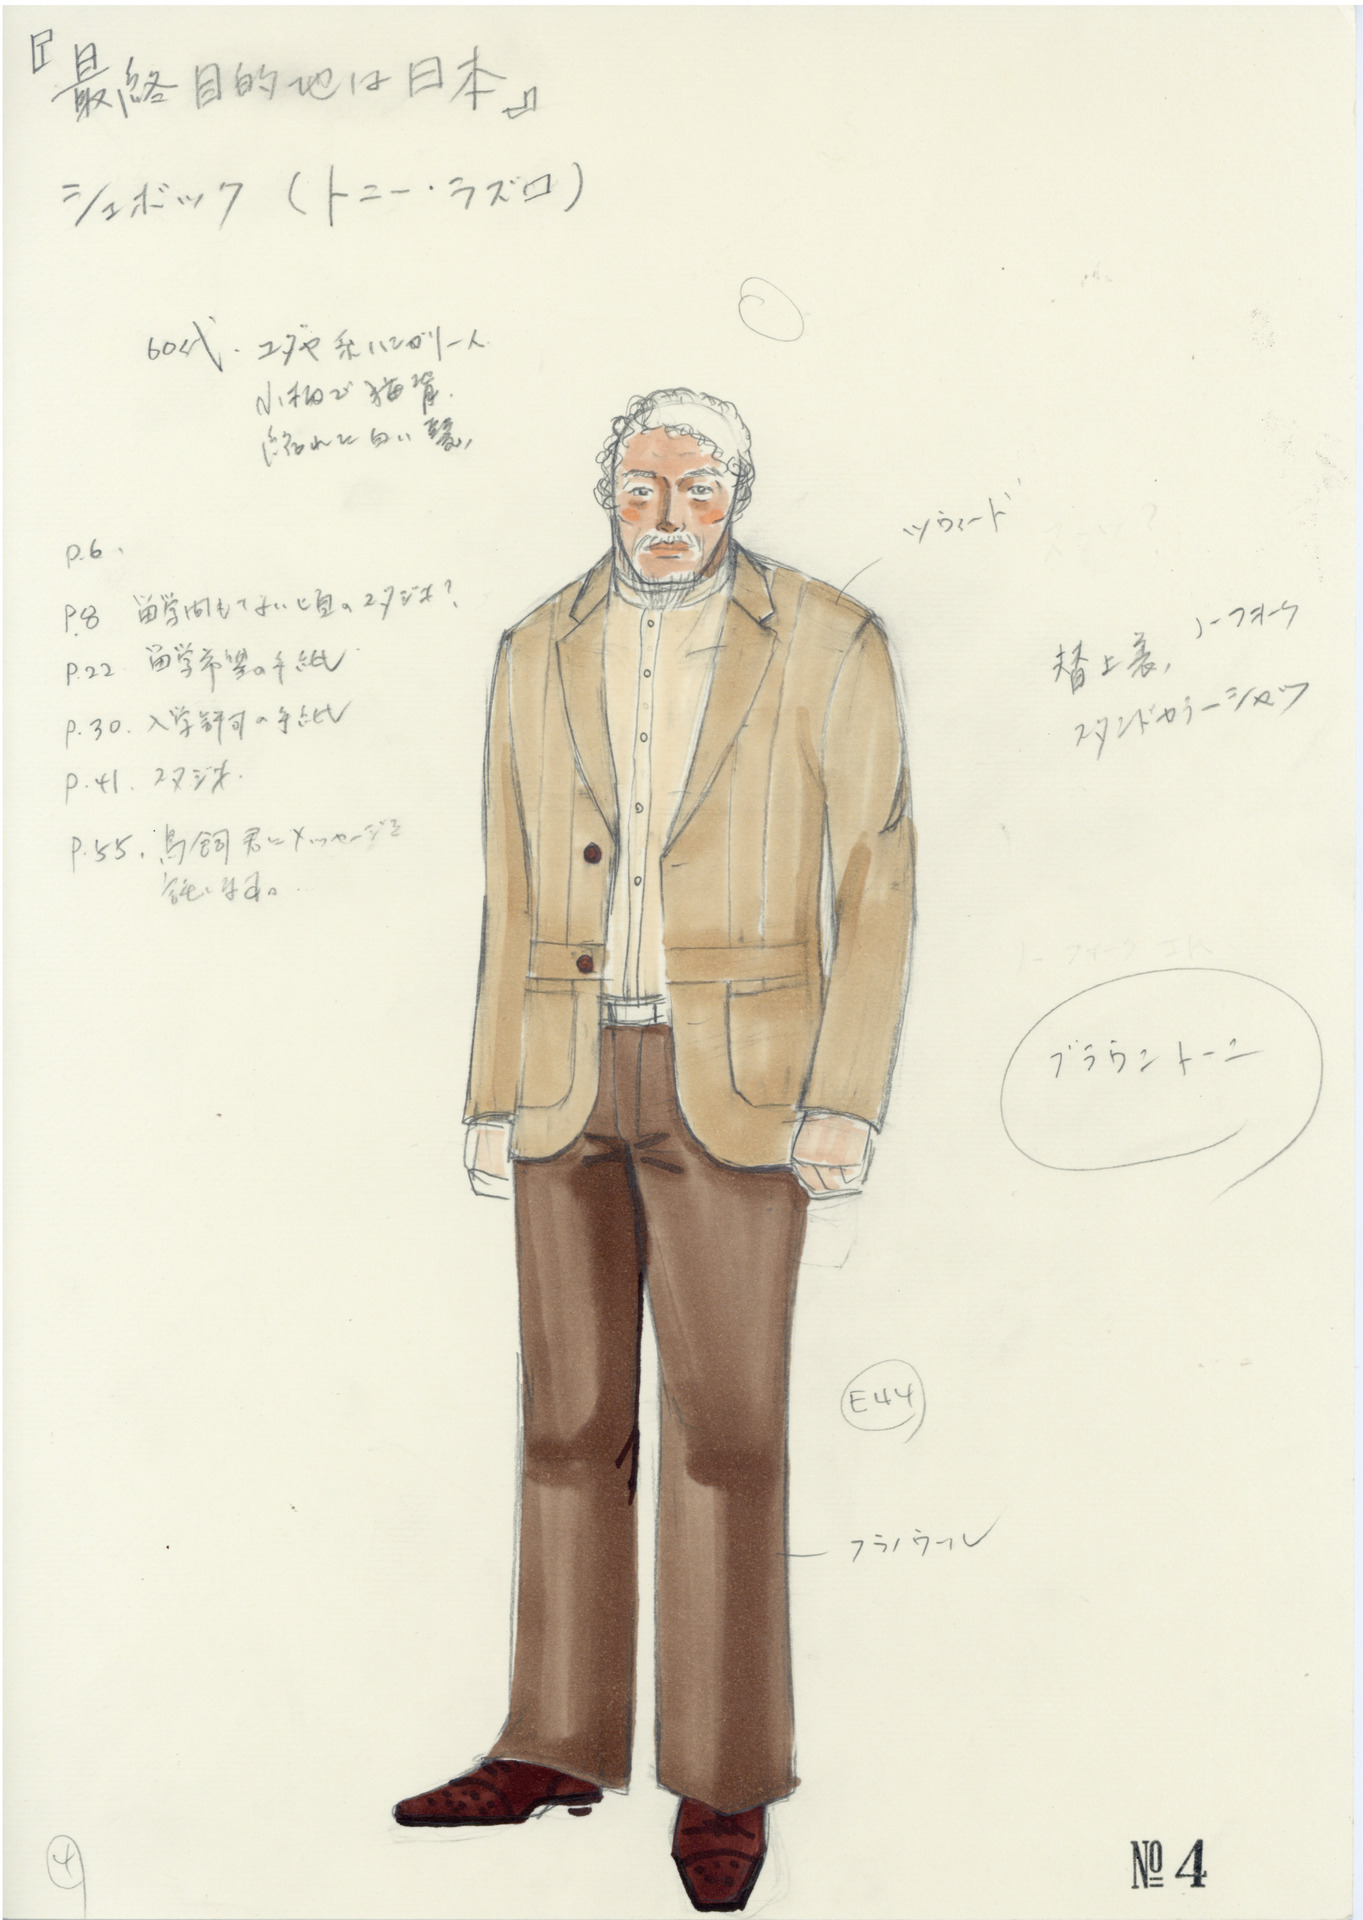 『最終目的地は日本』
シュボック（トニー・ラズロ）
60代．ユダヤ系ハンガリー人
小柄で猫背．
白い髪，
ツウィード
P.6．
P.8 留学間もない頃のスタジオ？
P.22 留学希望の手紙
P.30. 入学許可の手紙
P.41. スタジオ．
P.55. 鳥飼君にメッセージを
託します。
替上着，ノーフォーク
スタンドカラーシャツ
ブラウントーン
E44
フラノウール
4
№ 4